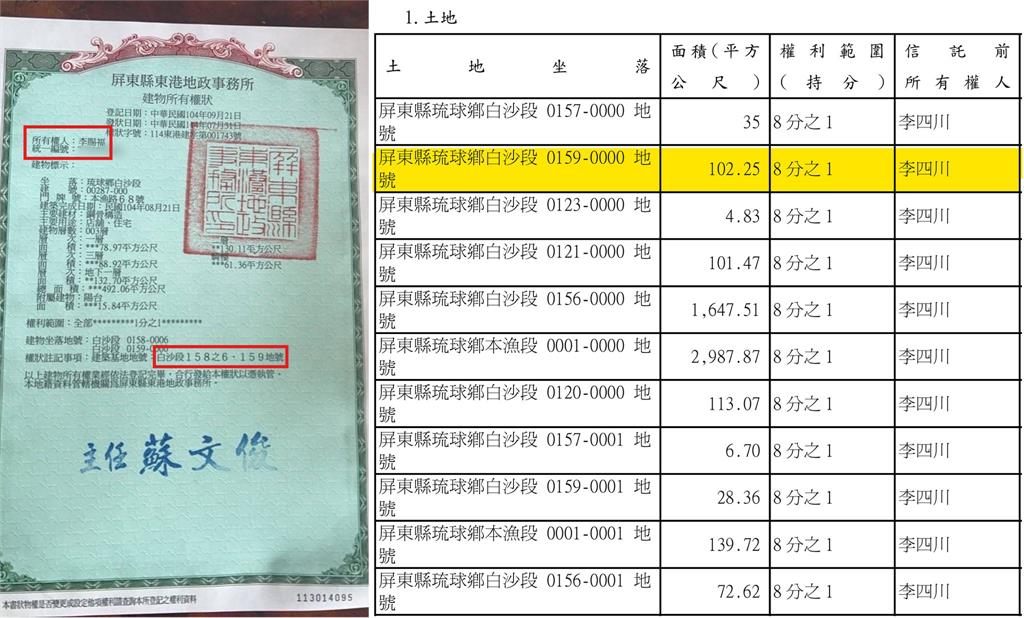 屏東縣東港地政事務所
建物所有權狀
登記日期：中華民國104年09月21日
發狀日期：中華民國104年07月31日
權狀字號：114東港建字第001743號
所有權人：李賜福
統一編號：
建物標示：
坐 落：琉球鄉白沙段
建 號：00287-000
門 牌 號：本漁路68號
建築完成日期：民國104年08月21日
主要建材：鋼骨構造
主要用途：店舖、住宅
建物層數：003層
層 次：一層
面 積：***78.97平方公尺 **130.11平方公尺
層 次：三層
面 積：***88.92平方公尺 ***61.36平方公尺
層 次：地下一層
面 積：**132.70平方公尺
總 面 積：***492.06平方公尺
附屬建物：陽台
面 積：***15.84平方公尺
權利範圍：全部*********1分之1*********
建物坐落地號：白沙段 0158-0006
白沙段 0159-0000
權狀註記事項：建築基地地號：白沙段158之6、159地號
以上建物所有權業經依法登記完畢，合行發給本權狀以憑執管。
本地籍資料管轄機關為屏東縣東港地政事務所。
主任 蘇文俊
本書狀物權是否變更或設定他項權利請查詢本所登記之權利資料
113014095
1.土地
土地坐落 面積(平方公尺) 權利範圍(持分) 信託前所有權人
屏東縣琉球鄉白沙段 0157-0000 地號 35 8分之1 李四川
屏東縣琉球鄉白沙段 0159-0000 地號 102.25 8分之1 李四川
屏東縣琉球鄉白沙段 0123-0000 地號 4.83 8分之1 李四川
屏東縣琉球鄉白沙段 0121-0000 地號 101.47 8分之1 李四川
屏東縣琉球鄉白沙段 0156-0000 地號 1,647.51 8分之1 李四川
屏東縣琉球鄉本漁段 0001-0000 地號 2,987.87 8分之1 李四川
屏東縣琉球鄉白沙段 0120-0000 地號 113.07 8分之1 李四川
屏東縣琉球鄉白沙段 0157-0001 地號 6.70 8分之1 李四川
屏東縣琉球鄉白沙段 0159-0001 地號 28.36 8分之1 李四川
屏東縣琉球鄉本漁段 0001-0001 地號 139.72 8分之1 李四川
屏東縣琉球鄉白沙段 0156-0001 地號 72.62 8分之1 李四川